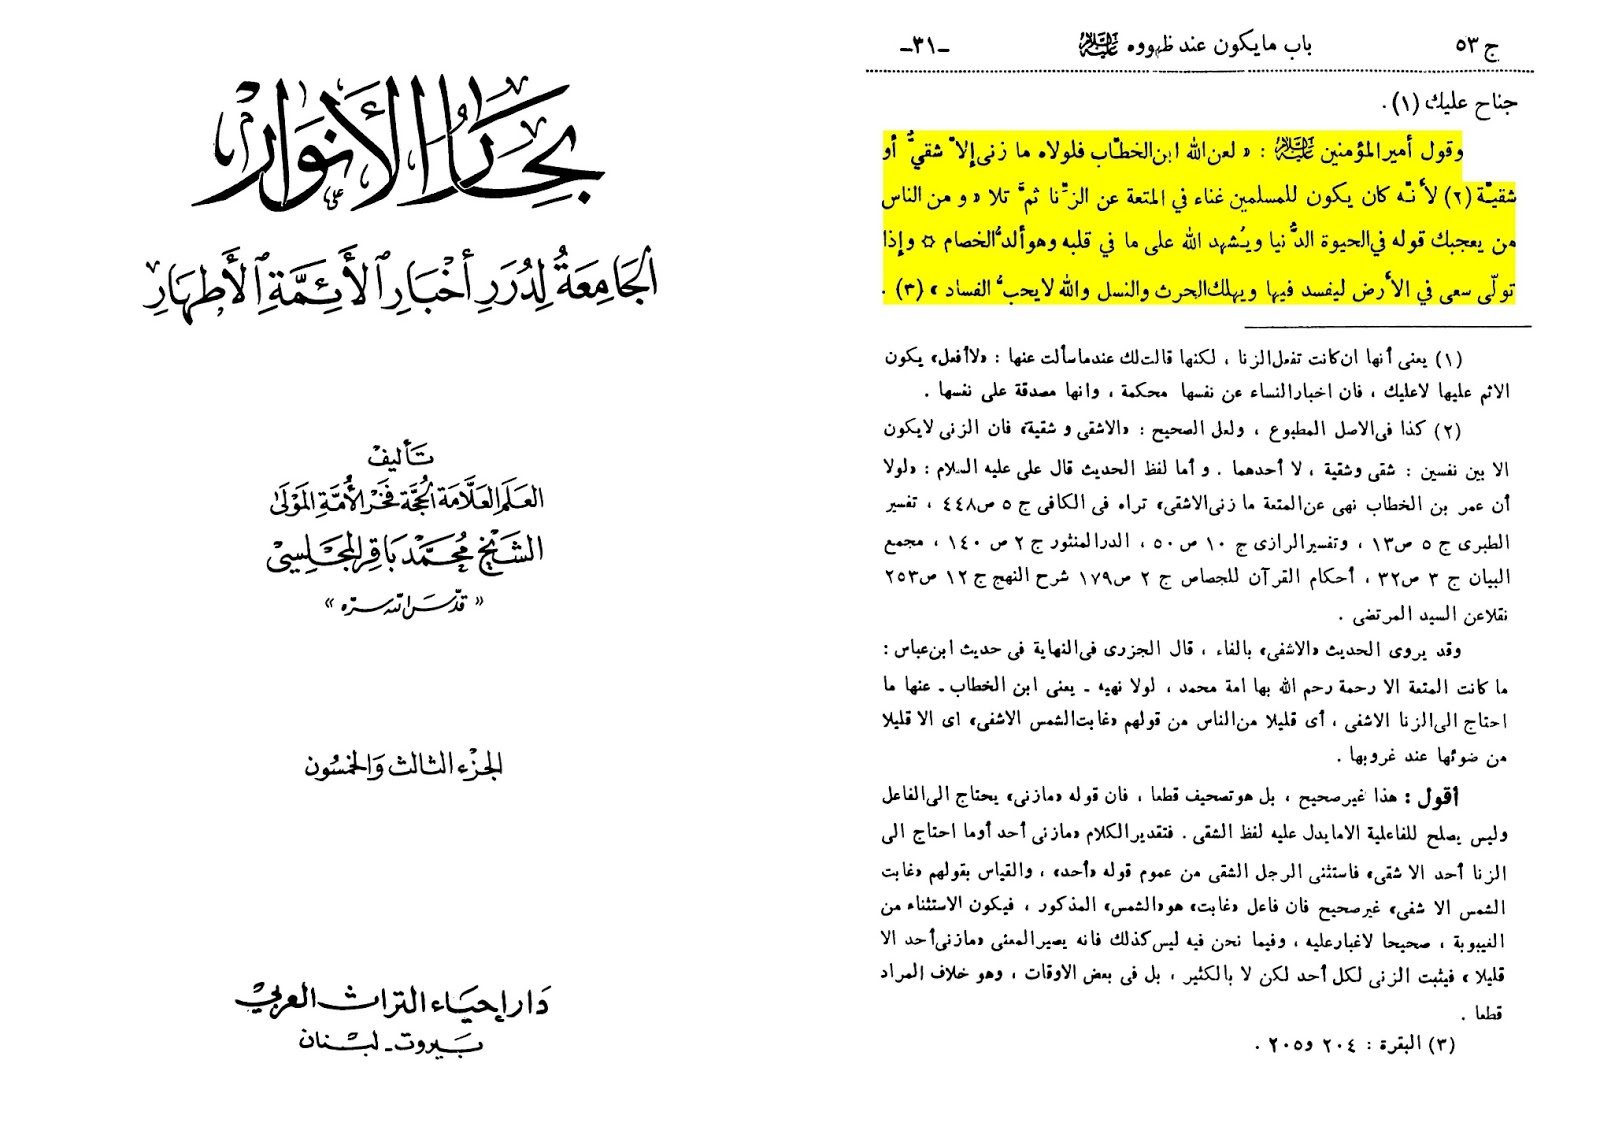 بحار الأنوار
الجامعة لدرر أخبار الأئمة الأطهار
تأليف
العلم العلامة الحجة فخر الأمة المولى
الشيخ محمد باقر المجلسي
« قدس الله سره »
الجزء الثالث والخمسون
دار إحياء التراث العربي
بيروت - لبنان
ج ٥٣ باب ما يكون عند ظهووه عليه السلام -٣١-
جناح عليك (١) .
وقول أمير المؤمنين عليه السلام : « لعن الله ابن الخطّاب فلولاه ما زنى إلاّ شقيٌّ أو
شقيّة (٢) لأنّه كان يكون للمسلمين غناء في المتعة عن الزِّنا ثمَّ تلا « و من الناس
من يعجبك قوله في الحيوة الدُّنيا ويُشهد الله على ما في قلبه وهو ألدُّ الخصام ☼ وإذا
تولّى سعى في الأرض ليفسد فيها ويهلك الحرث والنسل والله لا يحبُّ الفساد » (٣) .
(١) يعنى أنها ان كانت تفعل الزنا ، لكنها قالت لك عندما سألت عنها : «لا أفعل» يكون
الاثم عليها لا عليك ، فان اخبار النساء عن نفسها محكمة ، وانها مصدقة على نفسها .
(٢) كذا فى الاصل المطبوع ، ولعل الصحيح : «الا شقى و شقية» فان الزنى لا يكون
الا بين نفسين : شقى وشقية ، لا أحدهما . و أما لفظ الحديث قال على عليه السلام : «لولا
أن عمر بن الخطاب نهى عن المتعة ما زنى الا شقى» تراه فى الكافى ج ٥ ص ٤٤٨ ، تفسير
الطبرى ج ٥ ص ١٣ ، وتفسير الرازى ج ١٠ ص ٥٠ ، الدر المنثور ج ٢ ص ١٤٠ ، مجمع
البيان ج ٣ ص ٣٢ ، أحكام القرآن للجصاص ج ٢ ص ١٧٩ شرح النهج ج ١٢ ص ٢٥٣
نقلا عن السيد المرتضى .
وقد يروى الحديث «الا شفى» بالفاء ، قال الجزرى فى النهاية فى حديث ابن عباس :
ما كانت المتعة الا رحمة رحم الله بها امة محمد ، لولا نهيه - يعنى ابن الخطاب - عنها ما
احتاج الى الزنا الا شفى ، أى قليلا من الناس من قولهم «غابت الشمس الا شفى» اى الا قليلا
من ضوئها عند غروبها .
أقول : هذا غير صحيح ، بل هو تصحيف قطعا ، فان قوله «ما زنى» يحتاج الى الفاعل
وليس يصلح للفاعلية الا ما يدل عليه لفظ الشقى . فتقدير الكلام «ما زنى أحد أو ما احتاج الى
الزنا أحد الا شقى» فاستثنى الرجل الشقى من عموم قوله «أحد» ، والقياس بقولهم «غابت
الشمس الا شفى» غير صحيح فان فاعل «غابت» هو «الشمس» المذكور ، فيكون الاستثناء من
الغيبوبة ، صحيحا لا غبار عليه ، وفيما نحن فيه ليس كذلك فانه يصير المعنى «ما زنى أحد الا
قليلا» فيثبت الزنى لكل أحد لكن لا بالكثير ، بل فى بعض الاوقات ، وهو خلاف المراد
قطعا .
(٣) البقرة : ٢٠٤ و ٢٠٥ .